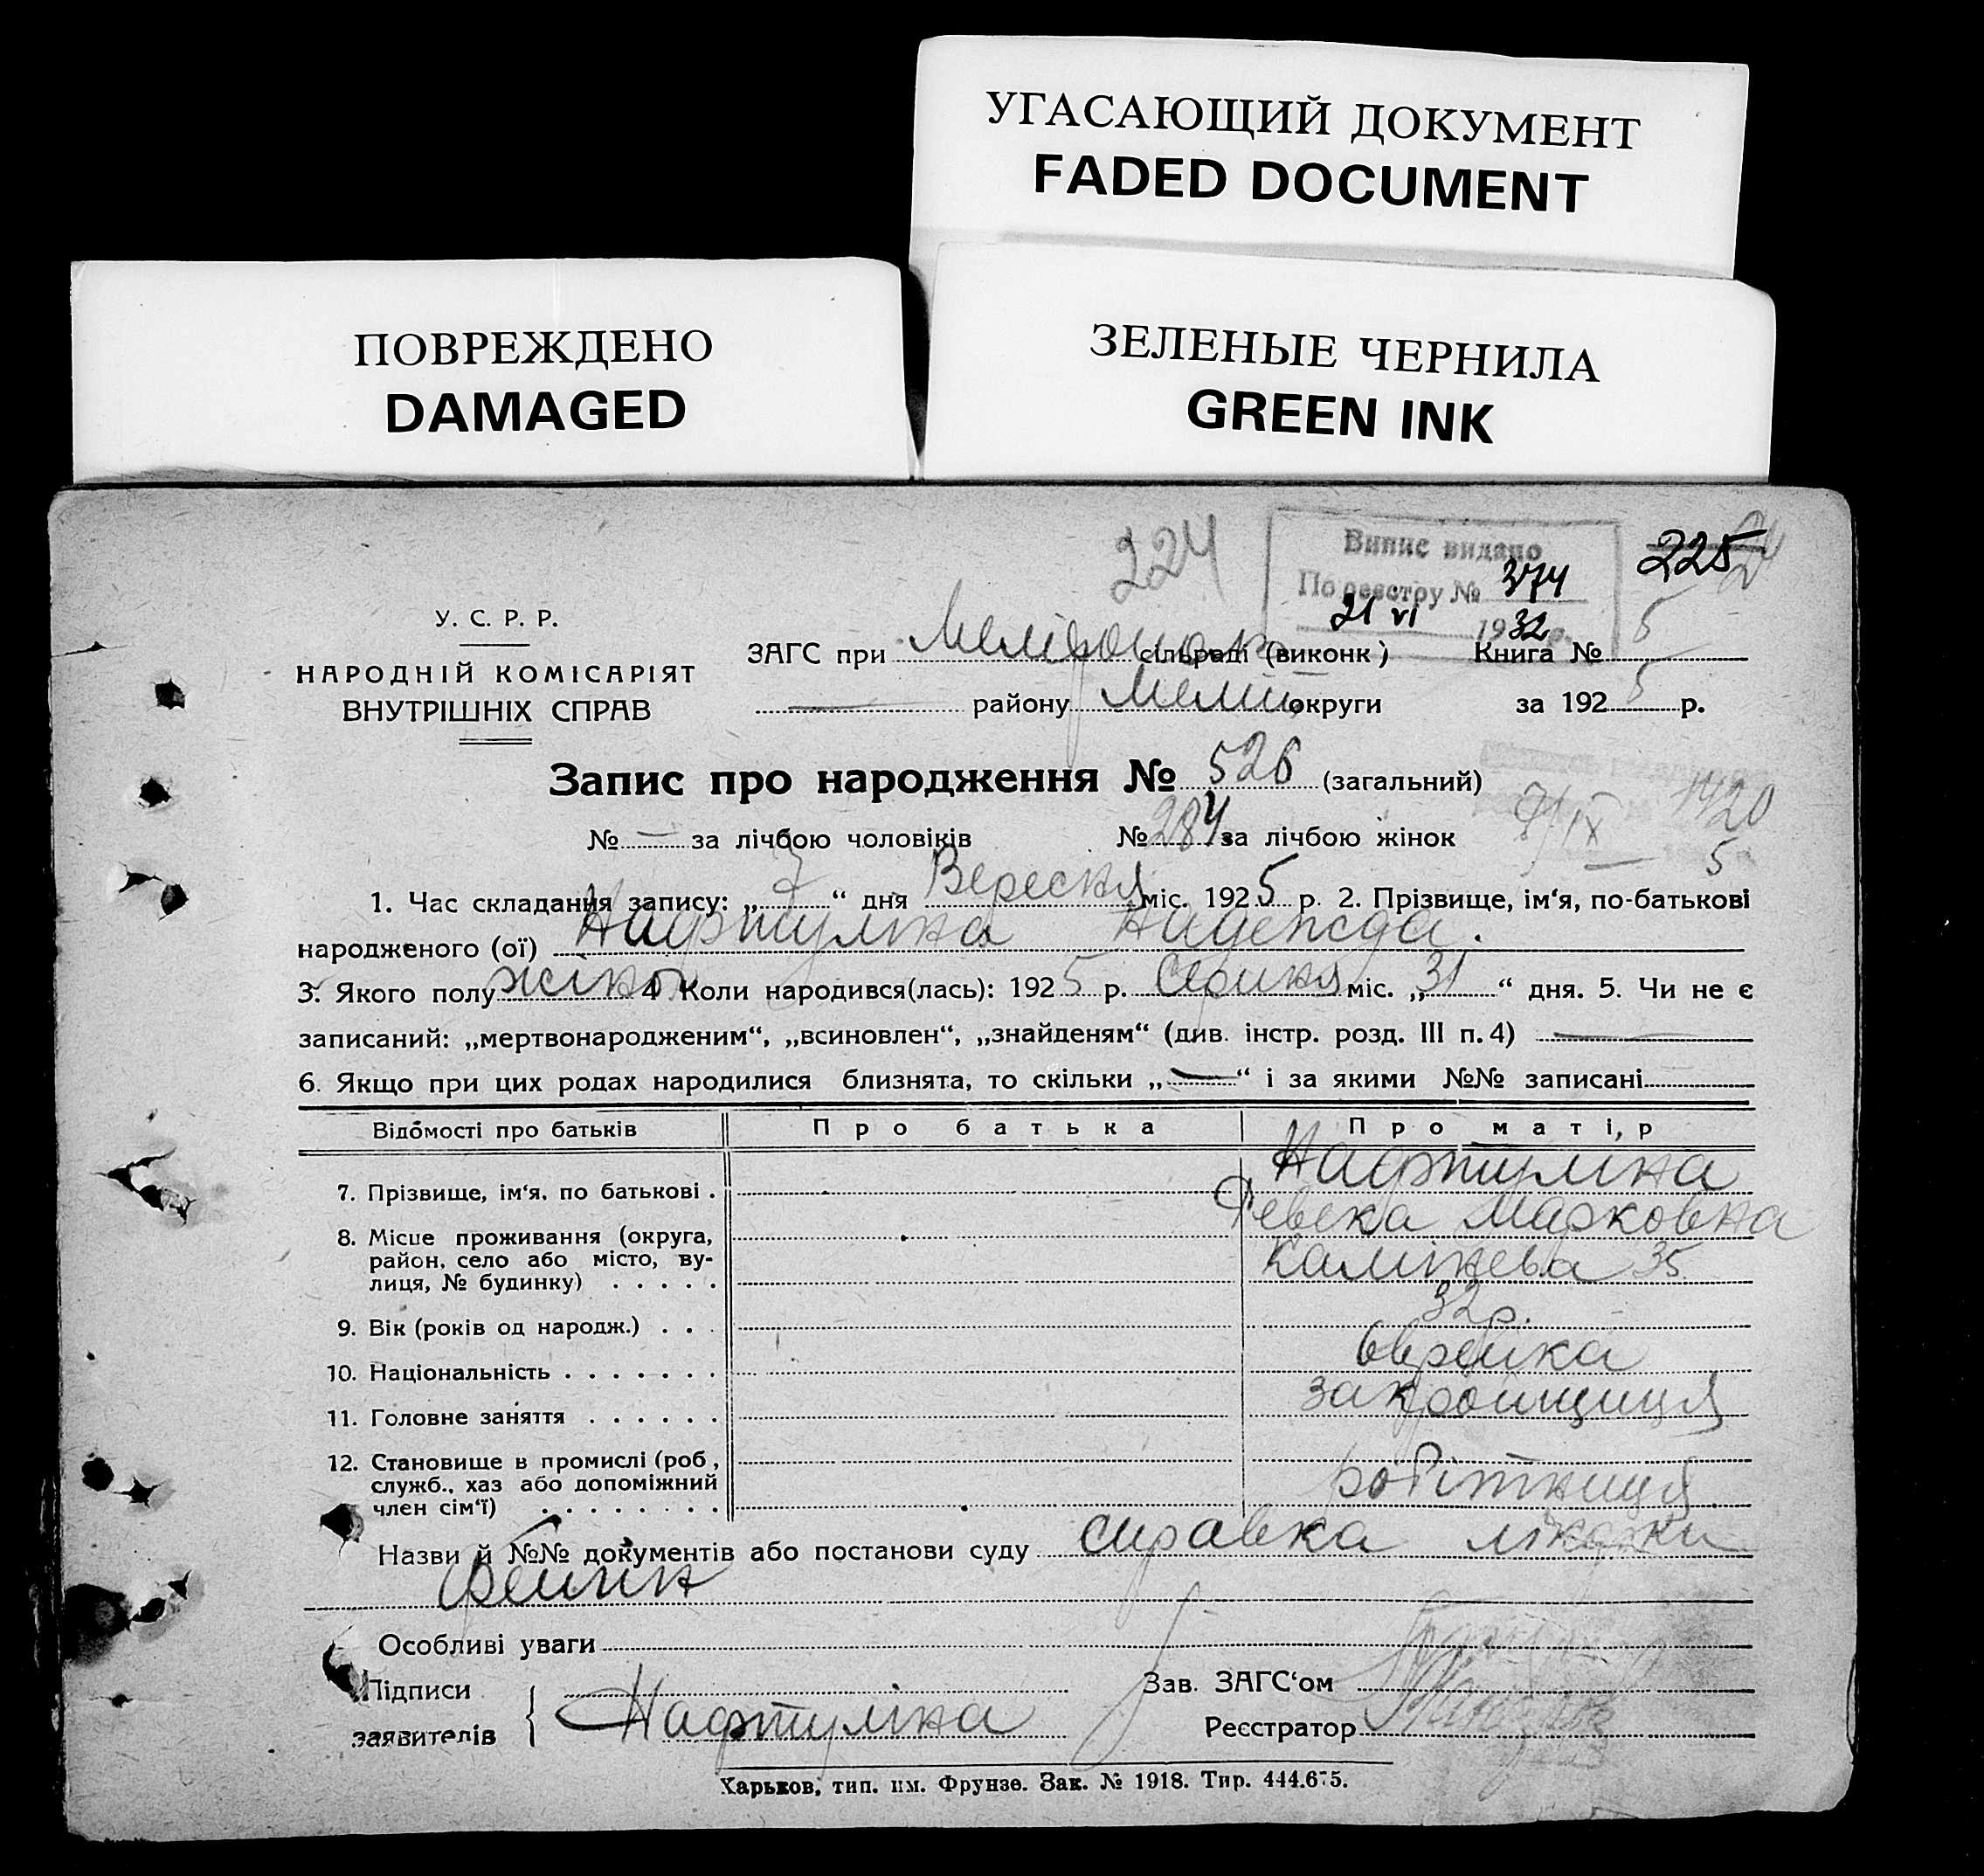 УГАСАЮЩИЙ ДОКУМЕНТ
FADED DOCUMENT
ПОВРЕЖДЕНО
DAMAGED
ЗЕЛЕНЫЕ ЧЕРНИЛА
GREEN INK
224
Випис видано
По реєстру № 374
21 VI 1932 р.
225
У. С. Р. Р.
НАРОДНІЙ КОМІСАРІЯТ
ВНУТРІШНІХ СПРАВ
ЗАГС при сільраді (виконк) Книга № 5
району Меліт округи за 1925 р.
Запис про народження № 526 (загальний)
№ — за лічбою чоловіків № 284 за лічбою жінок
1. Час складання запису: „7“ дня Вересня міс. 1925 р. 2. Прізвище, ім‘я, по-батькові
народженого (ої) Нафтуліна Надежда.
3. Якого полу жіноч 4 Коли народився(лась): 1925 р. Серпня міс. „31“ дня. 5. Чи не є
записаний: „мертвонародженим“, „всиновлен“, „знайденям“ (див. інстр. розд. III п. 4) —
6. Якщо при цих родах народилися близнята, то скільки „—“ і за якими №№ записані
Відомості про батьків Про батька Про матір
7. Прізвище, ім‘я, по батькові . Нафтуліна
Ревека Марковна
8. Місце проживання (округа,
район, село або місто, ву-
лиця, № будинку) . . . . . Калінева 35
9. Вік (років од народж.) . . . 32 р.
10. Національність . . . . . . . Єврейка
11. Головне заняття . . . . . . закройщиця
12. Становище в промислі (роб,
служб., хаз або допоміжний
член сім‘ї) . . . . . . . . робітниця
Назви й №№ документів або постанови суду справка лікарки
Фейгін
Особливі уваги
Підписи
заявителів Нафтуліна
Зав. ЗАГС‘ом
Реєстратор
Харьков, тип. им. Фрунзе. Зак. № 1918. Тир. 444.675.